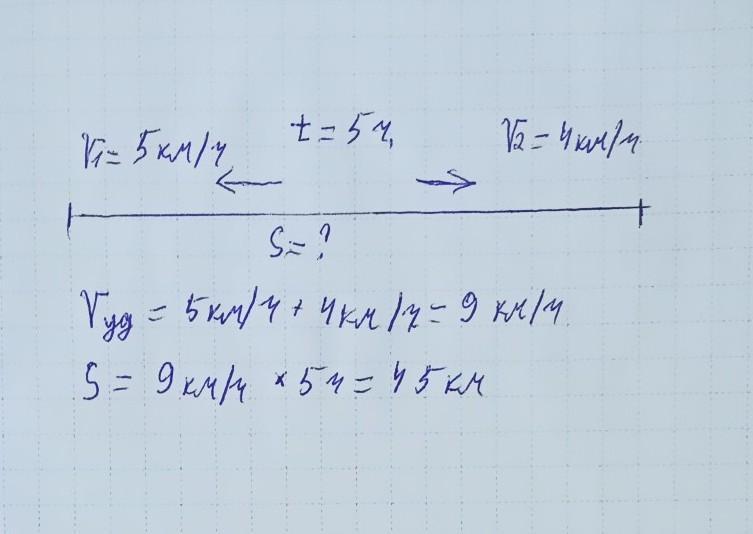 V₁= 5 км/ч t = 5 ч, V₂ = 4 км/ч
S = ?
Vуд = 5 км/ч + 4 км/ч = 9 км/ч
S = 9 км/ч × 5 ч = 45 км